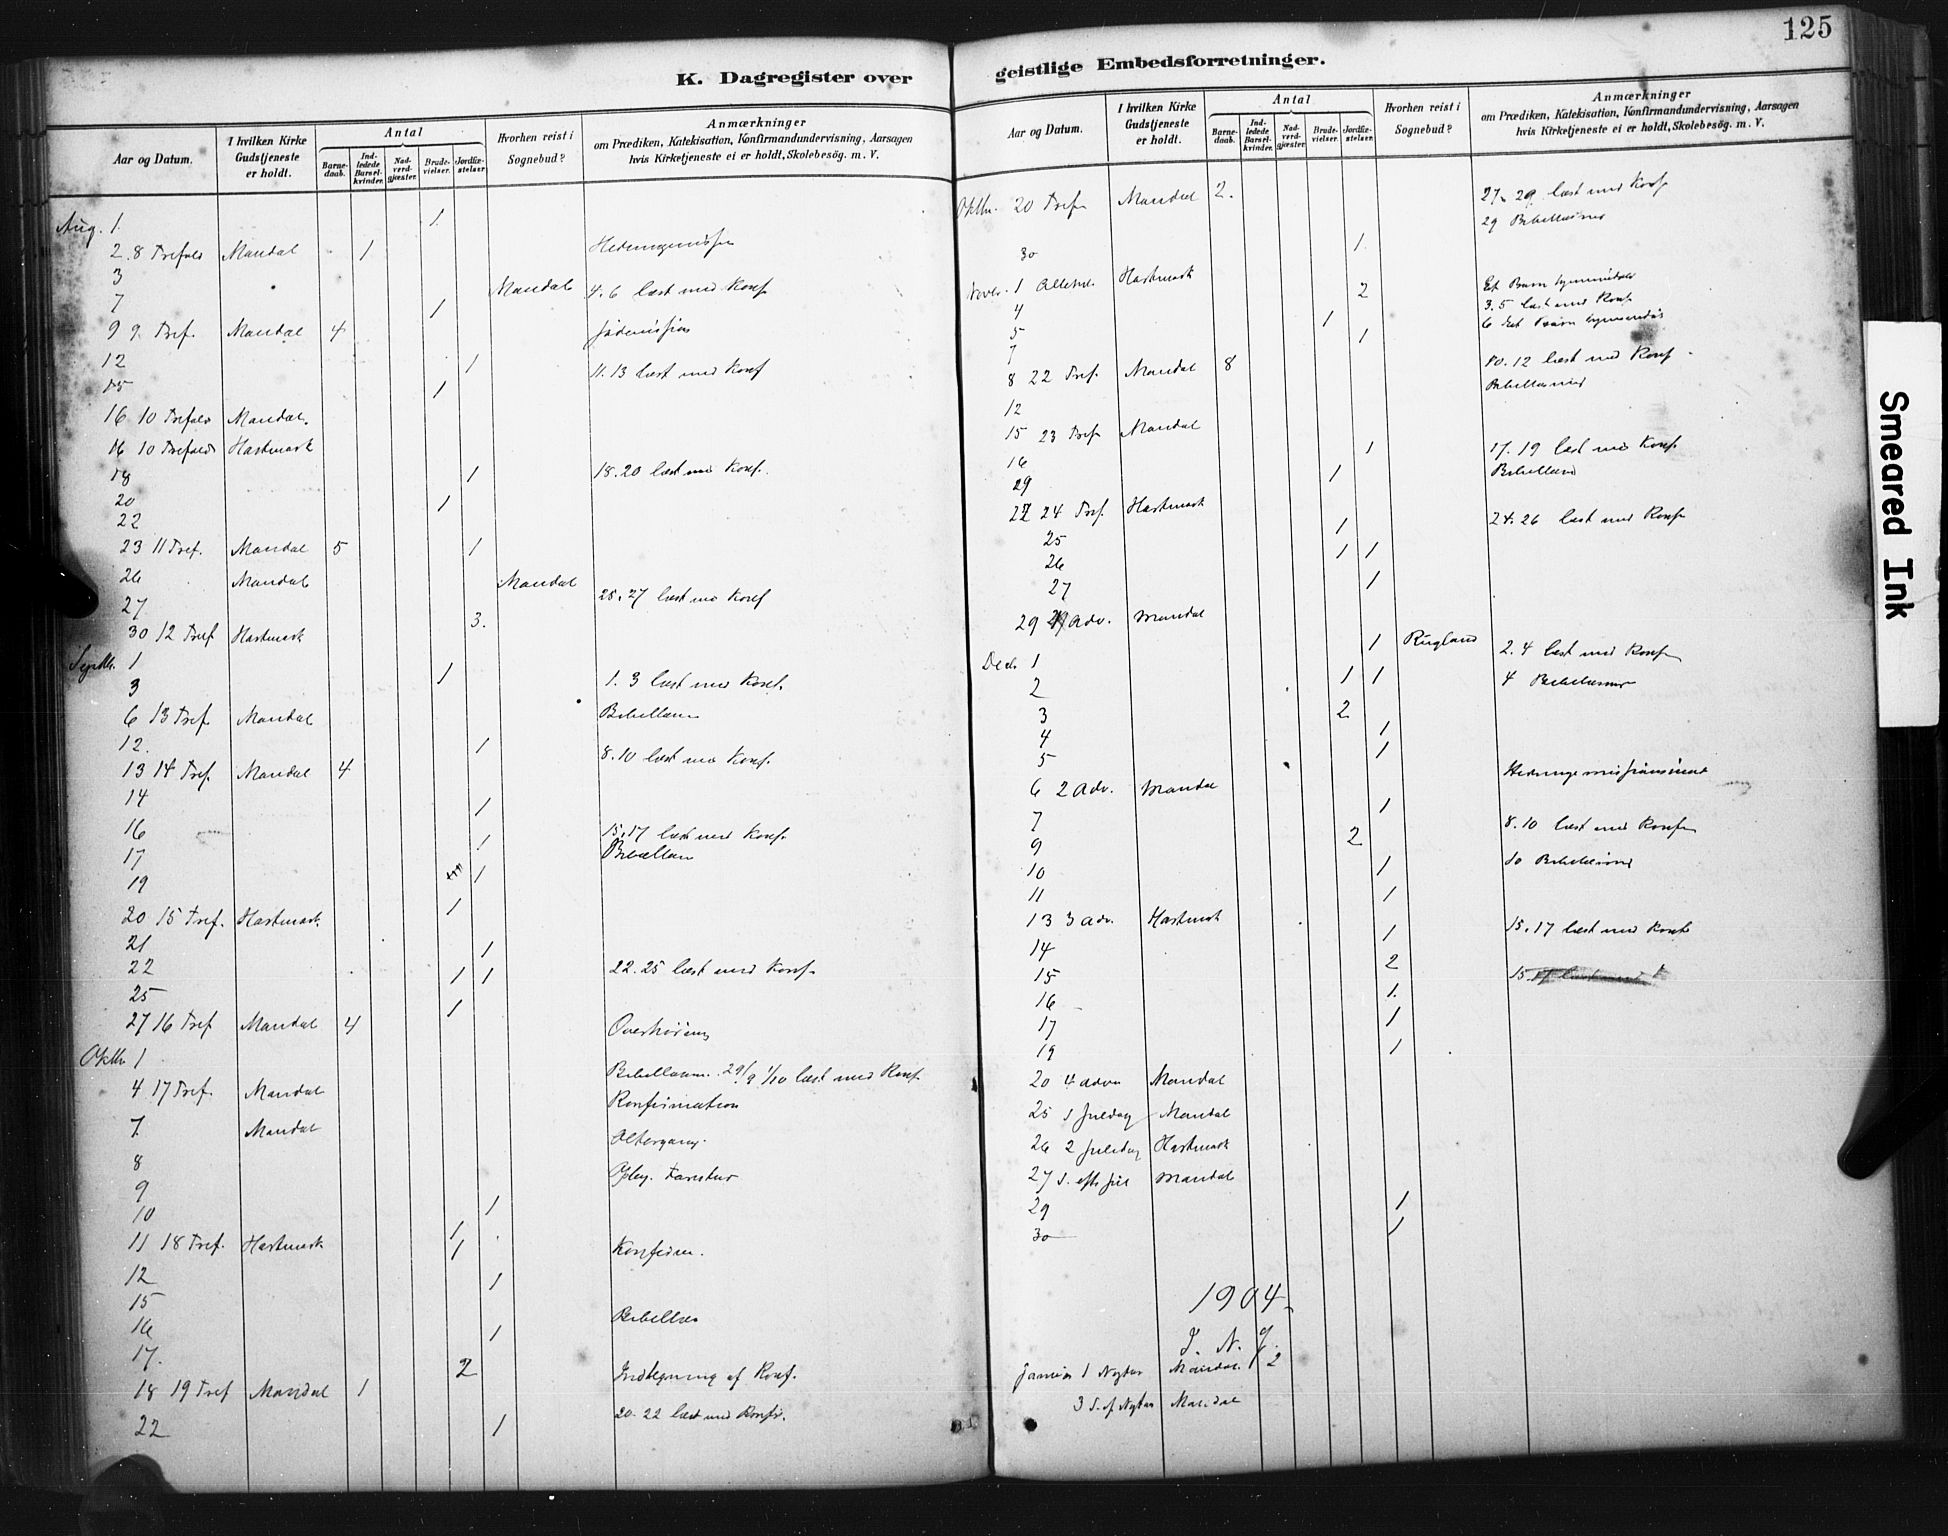 125
K. Dagregister over
Aar og Datum.
I hvilken Kirke Gudstjeneste er holdt.
Antal
Barnedaab.
Indledede Barselkvinder.
Nadverdgjæster.
Brudevielser.
Jordfæstelser
Hvorhen reist i Sognebud?
Anmærkninger
om Prædiken, Katekisation, Konfirmandundervisning, Aarsagen hvis Kirketjeneste ei er holdt, Skolebesög. m. V.
Aug. 1. 1.
2. 8 Trefols Mandal 1
3 Mandal 4. 6 læst med Konf
7 1
9 9. Tref. Mandal 4
12 1 11. 13 læst med Konf
15 1
16 10 Trefols Mandal.
16 10 Trefols Hartmark
18 1 18. 20 læst med Konf.
20 1
22
23 11 Tref. Mandal 5 1
26 Mandal Mandal
27 25. 27 læst med Konf
30 12 Tref Hartmark 3.
Septbr. 1
3 1 1. 3 læst med Konf.
6 13 Tref Mandal Bibellæsn
12. 1
13 14 Tref. Mandal 4 8. 10 læst med Konf.
14 1
16 1 15. 17 læst med Konf.
17 1 Bibellæsn
19 1
20 15 Tref. Hartmark.
21 1
22 1 1 22. 25 læst med Konf.
25 1
27 16 Tref Mandal 4 Overhøring
Oktbr 1 Bibellæsn. 29/9 1/10 læst med Konf.
4 17 Tref. Mandal Konfirmation
7. Mandal Altergang.
8
9
10 1
11 18 Tref. Hartmark 1 Konfirm.
12 1
15 Bibellæs
16 1
17. 2
18 19 Tref Mandal 1 Indtegning af Konf.
22 1 20. 22 læst med Konfr.
geistlige Embedsforretninger.
Aar og Datum.
I hvilken Kirke Gudstjeneste er holdt.
Antal
Barnedaab.
Indledede Barselkvinder.
Nadverdgjæster.
Brudevielser.
Jordfæstelser.
Hvorhen reist i Sognebud?
Anmærkninger
om Prædiken, Katekisation, Konfirmandundervisning, Aarsagen hvis Kirketjeneste ei er holdt, Skolebesög. m. V.
Oktbr. 20 Tref Mandal 2. 27. 29 læst med Konf
29 Bibellæsning
30 1.
Novbr. 1 Alleh. Hartmark Et Barn hjemmedøbt
4 2 3. 5 læst med Konf
5 1 6 Et Barn hjemmedøbt
7 1
8 22 Tref. Mandal 8 10. 12 læst med Konf
12 Bibellæsning
15 23 Tref Mandal
16 1 17. 19 læst med Konf.
29 1 Bibellæsn
22 24 Tref. Hartmark 24. 26 læst med Konf
25 1
26 1 1
27 1
29 1 Adv. Mandal
Decbr 1 1 Rugland 2. 4 læst med Konf
2 1 1 4 Bibellæsning
3 2
4 1
5 1
6 2 Adv. Mandal
7 1
9 2 8. 10 læst med Konf
10 1 10 Bibellæsning
11 1
13 3 Adv. Hartmark
14 1 15. 17 læst med Konf
15 2 15.
16 1.
17 1
19 1
20 4 Adv Mandal
25 1 Juledag Mandal
26 2 Juledag Hartmark
27 S. eft Jul Mandal
29 1
30 1
1904
I. N. J.
1 Nytaar Mandal. 2
3 S. ef Nytaar Mandal
Smeared Ink